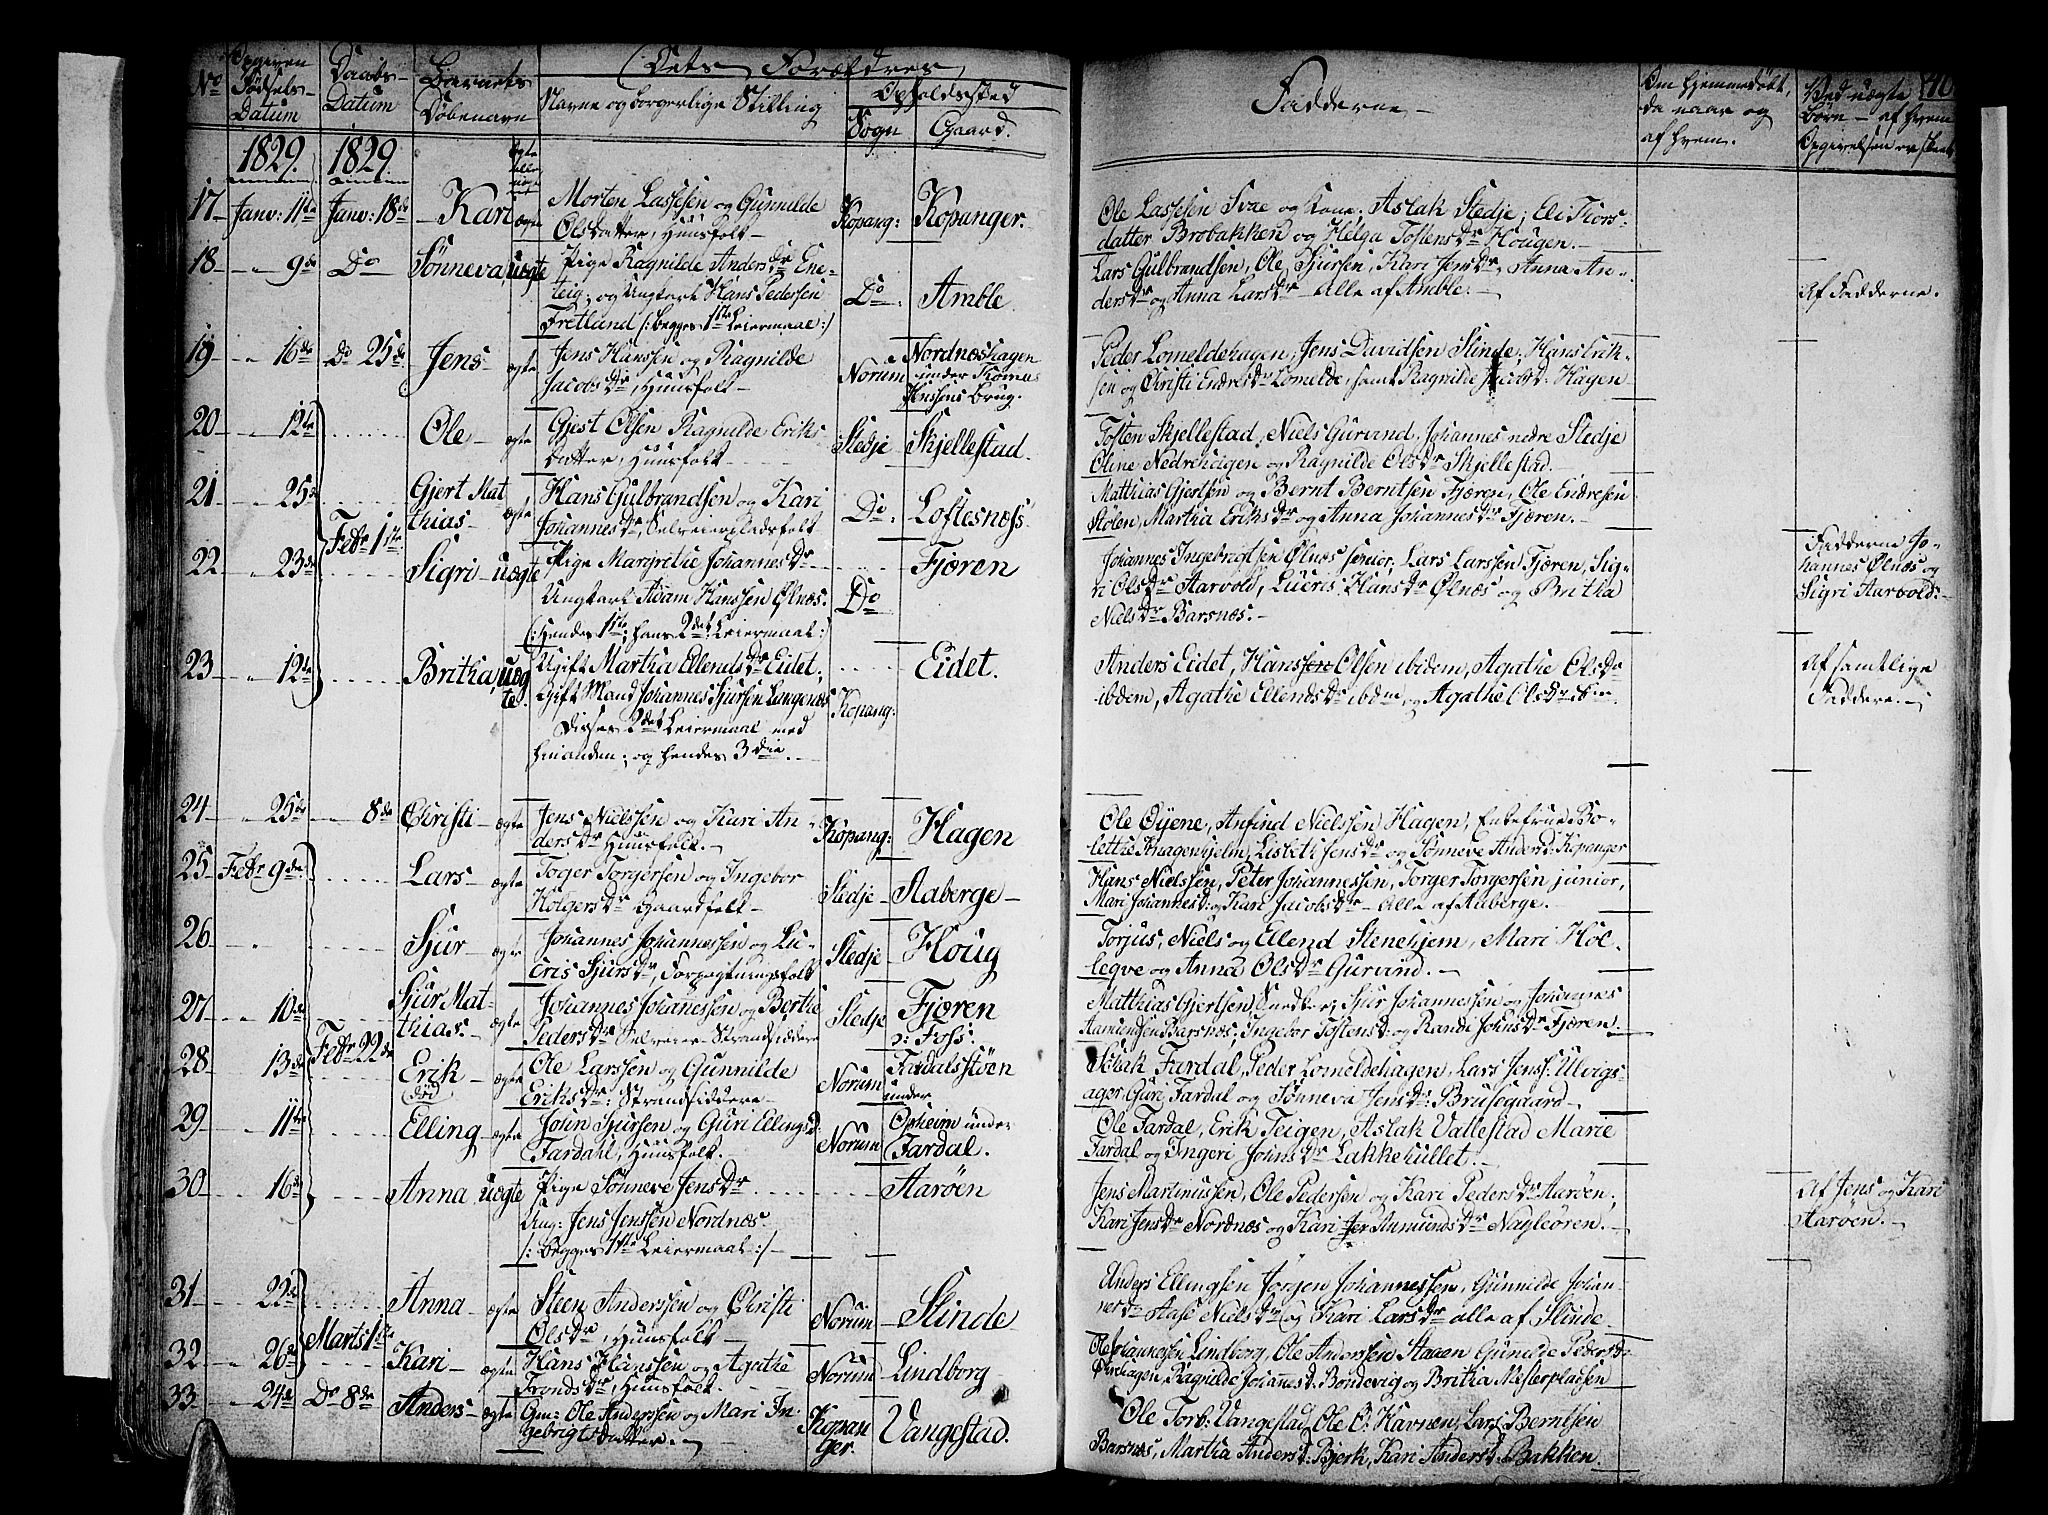 No Opgiven Fødsels-Datum Daabs-Datum Barnets Døbenavn Dets Forældres Navne og borgerlige Stilling Opholdssted Sogn Gaard.
Fadderne Om hjemmedøbt, da naar og af hvem. Ved uægte Børn – af hvem Opgivelsen er skeet
1829. 1829. ægte eller uægte
17 Janv: 11te Janv: 18de Kari ægte Morten Lassesen og Gunnilde
Olsdatter, Huusfolk Kopang: Kopanger.
Ole Lassesen Svae og Kone; Aslak Stedje; Eli Thors-
datter Brobakken og Helga Tostensdr Hougen.
18 " 9de Do Sønneva, uægte Pige Ragnilde Andersdr Ene-
teig; og Ungkarl Hans Pedersen
Fretland /: begges 1ste Leiermaal :/ Do Amble.
Lars Gulbrandsen, Ole Sjursen, Kari Jensdr, Anna An-
dersdr og Anna Larsdr – alle af Amble. Af Fadderne.
19 " 16de Do 25de Jens ægte Jens Hanssen og Ragnilde
Jacobsdr, Huusfolk Norum Nordnæshagen
under Thomas
Jenssens Brug.
Peder Lomeldehagen, Jens Davidsen Slinde, Hans Erik-
sen og Christi Endresdr Lomelde, samt Ragnilde Jacobsd: Hagen
20 " 12te Ole ægte Gjest Olsen Ragnilde Eriks
datter, Huusfolk Stedje Skjellestad.
Tosten Skjellestad, Niels Gurvind, Johannes nedre Stedje
Oline Nedrehagen og Ragnilde Olsdr Skjellestad.
21 " 25de Gjert Mat-
thias ægte Hans Gulbrandsen og Kari
Johannesdr, Selveierpladsfolk Do Loftesness
Matthias Gjertsen og Bernt Berntsen Fjæren, Ole Endresen
Stølen, Martha Eriksdr og Anna Johannesdr Fjæren.
Febr 1ste
22 " 23de Sigri uægte Pige Margrethe Johannesdr
Ungkarl Adam Hanssen Ølnæs.
(: hendes 1ste, hans 2det Leiermaal :) Do Fjæren
Johannes Ingebrigtsen Ølnæs senior, Lars Larssen Fjæren, Sig-
ri Olsdr Aarvold, Lucris Hansdr Ølnæs og Britha
Nielsdr Barsnæs. Fadderne Jo-
hannes Ølnæs og
Sigri Aarvold.
23 " 12te Britha, uæg-
te Ugift Martha Ellendsdr Eidet,
Gift Mand Johannes Sjursen Langenæs
Disses 2det Leiermaal med
hinanden; og hendes 3die. Kopang: Eidet.
Anders Eidet, Hans Olsen ibdem, Agathe Olsdr
ibdem, Agathe Ellendsdr ibdm og Agathe Olsdr Af samtlige
Faddere.
24 " 25de 8de Christi ægte Jens Nielssen og Kari An-
dersdr Huusfolk. Kopang: Hagen
Ole Øyene, Anfind Nielssen Hagen, Enkefrue Bo-
lette Knagenhjelm, Lisbeth Jensdr og Sønneve Andersd: Kopanger
25 Febr 9de Lars ægte Torger Torgersen og Ingebor
Holgersdr Gaardfolk Stedje Aaberge
Hans Nielssen, Peter Johannessen, Torger Torgersen junior,
Mari Johannesd: og Kari Jacobsdr – alle af Aaberge.
26 " Sjur ægte Johannes Johannessen og Lu-
cris Sjursdr, Forpagtningsfolk Stedje Houg
Torjus, Niels og Ellend Stenehjem, Mari Hol-
leqve og Anna Olsdr Gurvind.
27 10de Sjur Mat-
thias. ægte Johannes Johannessen og Berthe
Pedersdr Selveier Strandsiddere Stedje Fjæren
o: Foss:
Matthias Gjertsen Snedker, Sjur Johannessen og Johannes
Aamundsen Barsnæs, Ingebor Tostensd: og Randi Johnsdr Fjæren.
Febr 22de
28 13de Erik
død ægte Ole Larssen og Gunnilde
Eriksdr: Strandsiddere Norum Fardalsstøen
under
Fardal, Peder Lomeldehagen, Lars Jenss: Ulvigs-
ager, Guri Fardal og Sønneva Jensdr: Brusegaard
29 11te Elling ægte John Sjursen og Guri Ellingsd:
Fardahl, Huusfolk. Norum Opheim under
Fardal.
Ole Fardal, Erik Teigen, Aslak Vallestad Marie
Fardal og Ingeri Johnsdr Lakkehullet.
30 16de Anna, uægte Pige Sønneve Jensdr
Ung: Jens Jenssen Nordnæs.
/: begges 1ste Leiermaal :/ Aarøen
Jens Martinussen, Ole Pedersen og Kari Pedersdr Aarøen,
Kari Jensdr Nordnæs og Kari Aamundsdr Nagleøren. Af Jens og Kari
Aarøen.
31 22de Anna ægte Steen Anderssen og Christi
Olsdr, Huusfolk Norum Slinde
Anders Ellingsen Jørgen Johannessen, Gunnilde Johan-
nesdr Aase Nielsdr og Kari Larsdr alle af Slinde
Marts 1ste
32 " 26de Kari ægte Hans Hanssen og Agathe
Trondsdr, Huusfolk. Norum Lindborg
Ole Johannessen Lindborg, Ole Anderssen Staaen Gunnilde Pedersdr
Ragnilde Johannesd: Bondevig og Britha Mesterpladsen
33 24de Do 8de Anders ægte Gm: Ole Anderssen og Mari In-
gebrigtsdatter Kopan
ger. Vangestad.
Ole Torb: Vangestad, Ole O: Havnæn, Lars Berntsen
Barsnæs, Martha Andersd: Bjerk, Kari Andersd: Bakken.